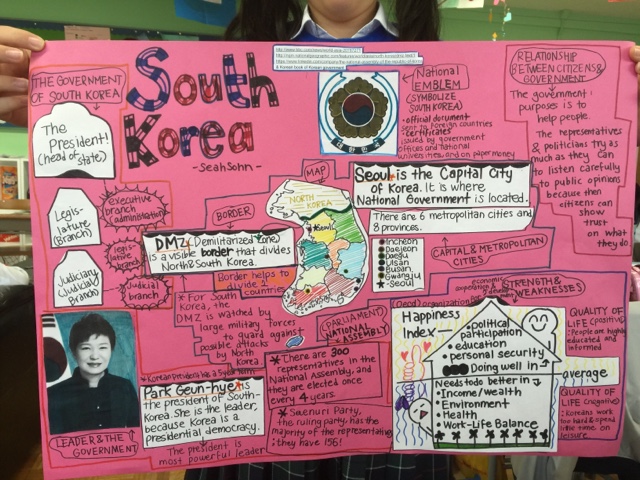 South
Korea
- Seah Sohn -
THE GOVERNMENT
OF SOUTH KOREA
The
President!
(Head of State)
Legis-
lature
(Branch)
Judiciary
(Judicial
Branch)
executive
branch
(administration)
legislative
branch
Judicial
branch
BORDER
DMZ (Demilitarized Zone)
is a visible border that divides
North & South Korea.
Border helps to
divide 2
countries
* For South
Korea, the
DMZ is watched by
large military forces
to guard against
possible attacks
by North
Korea
MAP
NORTH
KOREA
National
EMBLEM
(SYMBOLIZE
SOUTH KOREA)
• official document
sent to foreign countries
• certificates
issued by government
offices and national
universities, and on paper money
대한민국
Seoul is the Capital City
of Korea. It is where
National Government is located.
There are 6 metropolitan cities and
8 provinces.
Incheon
Daejeon
Daegu
Ulsan
Busan
Gwangju
★ Seoul
CAPITAL & METROPOLITAN
CITIES
RELATIONSHIP
BETWEEN CITIZENS &
GOVERNMENT
The government's
purposes is to
help people.
The representatives
& politicians try as
much as they can
to listen carefully
to public opinions
because then
citizens can
show
trust
on what
they do
STRENGTH &
WEAKNESSES
Happiness
Index
• political
participation
• education
• personal security
Doing well in
Needs to do better in
• Income/wealth
• Environment
• Health
• Work-Life Balance
average
QUALITY OF
LIFE (positive)
: People are highly
educated and
informed
QUALITY OF
LIFE (negative)
: Koreans work
too hard & spend
little time on
leisure
(PARLIAMENT)
NATIONAL ASSEMBLY
* There are 300
representatives in the
National Assembly, and
they are elected once
every 4 years.
* Saenuri Party,
the ruling party, has the
majority of the representative
; they have 156!
* Korean President has a 5 year term
Park Geun-hye is
the president of South-
Korea. She is the leader,
because Korea is a
presidential democracy.
The president is
most powerful leader
LEADER & THE
GOVERNMENT